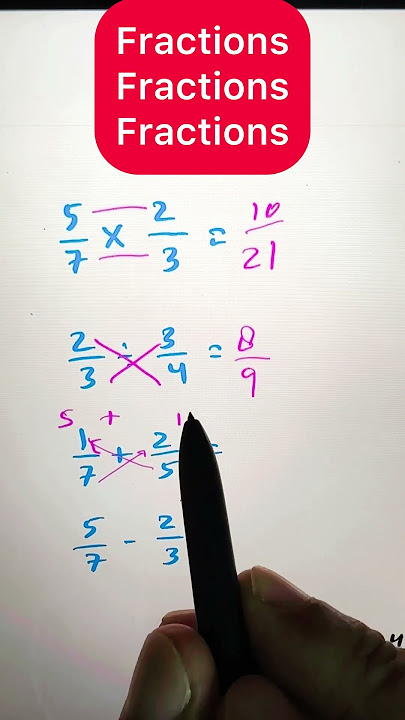 Fractions
Fractions
Fractions
5/7 × 2/3 = 10/21
2/3 ÷ 3/4 = 8/9
5 + 1
1/7 + 2/5 =
5/7 - 2/3